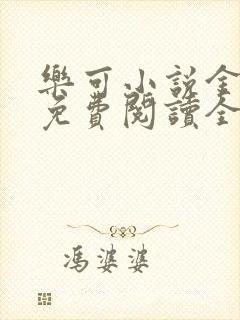 樂可小說全
免費閱讀全
馮婆婆